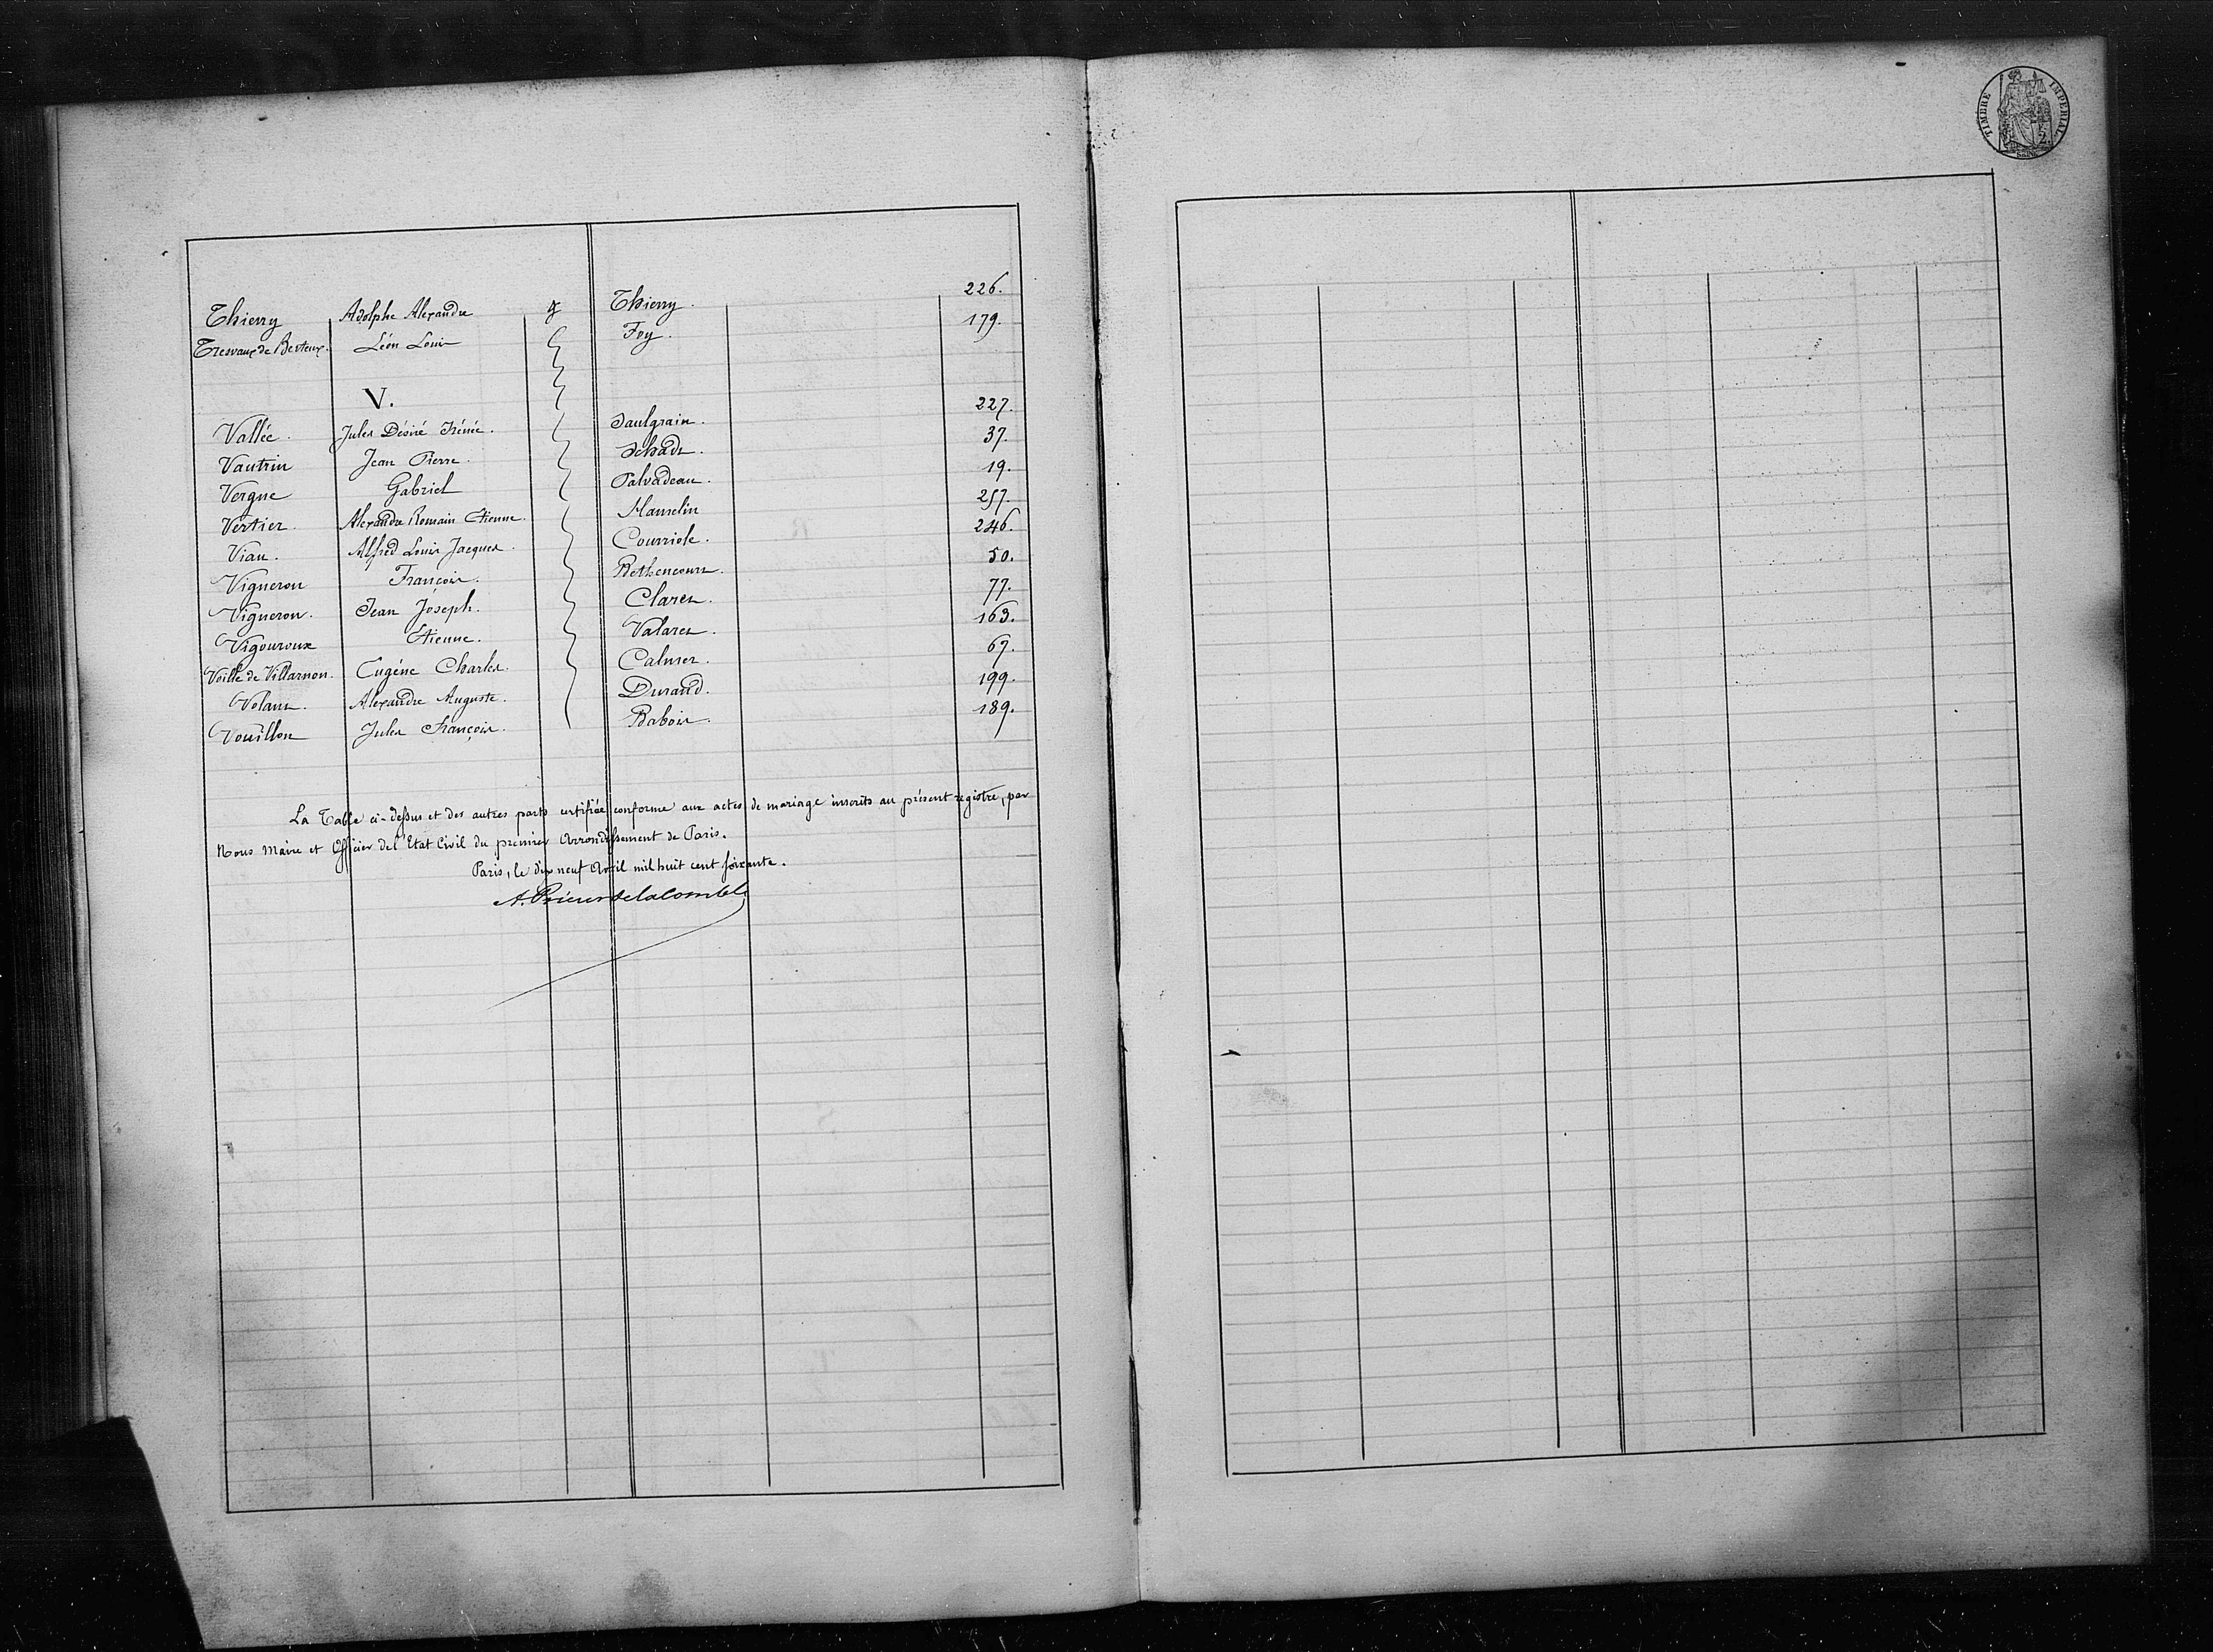 Thierry Adolphe Alexandre & Thierry. 226.
Tresvaux de Berteux. Léon Louis Foy. 179.
V.
Vallée. Jules Désiré Irénée. Saulgrain. 227.
Vautrin Jean Pierre. Schade. 37.
Vergne Gabriel Palvadeau. 19.
Vertier. Alexandre Romain Etienne. Hamelin 257.
Viau. Alfred Louis Jacques. Courriole. 246.
Vigneron François. Bethencourt. 50.
Vigneron. Jean Joseph. Claret. 77.
Vigouroux Etienne. Valaret. 163.
Voille de Villarnon. Eugène Charles. Calmer. 67.
Volant. Alexandre Auguste. Durand. 199.
Vouillon Jules François. Babois. 189.
La Table ci-dessus et des autres parts certifiée conforme aux actes de mariage inscrits au présent registre, par
Nous Maire et Officier de l'Etat Civil du premier Arrondissement de Paris.
Paris, le dix neuf Avril mil huit cent soixante.
A. Prieur de la Comble
TIMBRE IMPERIAL
2.
SEINE